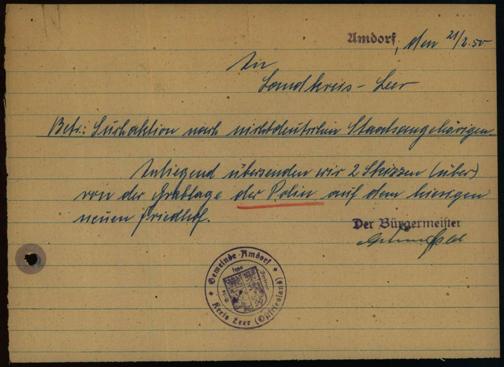 Amdorf, den 21/2.50
An
Landkreis-Leer
Betr.: Suchaktion nach nichtdeutschen Staatsangehörigen
Anliegend übersenden wir 2 Skizzen (über)
von der Grablage der Polin auf dem hiesigen
neuen Friedhof.
Der Bürgermeister
Gemeinde Amdorf
Kreis Leer (Ostfriesland)